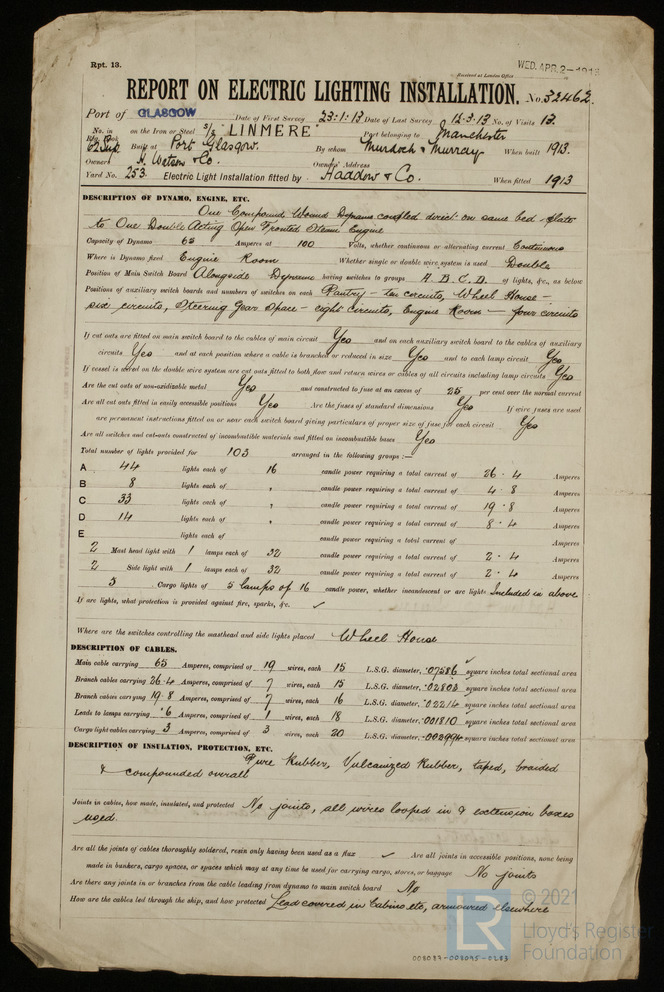 Rpt. 13.
WED. APR. 2-1913
Received at London Office
REPORT ON ELECTRIC LIGHTING INSTALLATION. No. 32462.
Port of GLASGOW Date of First Survey 23·1·13 Date of Last Survey 12·3·13 No. of Visits 13.
No. in Reg. Book on the Iron or Steel S/S "LINMERE" Port belonging to Manchester
62 Sup Built at Port Glasgow. By whom Murdoch & Murray When built 1913.
Owners H. Watson & Co. Owners' Address
Yard No. 253. Electric Light Installation fitted by Haddow & Co. When fitted 1913
DESCRIPTION OF DYNAMO, ENGINE, ETC.
One Compound Wound Dynamo coupled direct on same bed-plate
to One Double Acting Open Fronted Steam Engine
Capacity of Dynamo 65 Amperes at 100 Volts, whether continuous or alternating current Continuous
Where is Dynamo fixed Engine Room Whether single or double wire system is used Double
Position of Main Switch Board Alongside Dynamo having switches to groups A. B. C. D. of lights, &c., as below
Positions of auxiliary switch boards and numbers of switches on each Pantry - ten circuits, Wheel House -
six circuits, Steering Gear Space - eight circuits, Engine Room - four circuits
If cut outs are fitted on main switch board to the cables of main circuit Yes and on each auxiliary switch board to the cables of auxiliary
circuits Yes and at each position where a cable is branched or reduced in size Yes and to each lamp circuit Yes
If vessel is wired on the double wire system are cut outs fitted to both flow and return wires or cables of all circuits including lamp circuits Yes
Are the cut outs of non-oxidizable metal Yes and constructed to fuse at an excess of 25 per cent over the normal current
Are all cut outs fitted in easily accessible positions Yes Are the fuses of standard dimensions Yes If wire fuses are used
are permanent instructions fitted on or near each switch board giving particulars of proper size of fuse for each circuit Yes
Are all switches and cut-outs constructed of incombustible materials and fitted on incombustible bases Yes
Total number of lights provided for 103 arranged in the following groups :—
A 44 lights each of 16 candle power requiring a total current of 26·4 Amperes
B 8 lights each of " candle power requiring a total current of 4·8 Amperes
C 33 lights each of " candle power requiring a total current of 19·8 Amperes
D 14 lights each of " candle power requiring a total current of 8·4 Amperes
E lights each of candle power requiring a total current of Amperes
2 Mast head light with 1 lamps each of 32 candle power requiring a total current of 2·4 Amperes
2 Side light with 1 lamps each of 32 candle power requiring a total current of 2·4 Amperes
3 Cargo lights of 5 lamps of 16 candle power, whether incandescent or arc lights Included in above
If arc lights, what protection is provided against fire, sparks, &c. ✓
Where are the switches controlling the masthead and side lights placed Wheel House
DESCRIPTION OF CABLES.
Main cable carrying 65 Amperes, comprised of 19 wires, each 15 L.S.G. diameter, ·07586 square inches total sectional area
Branch cables carrying 26·4 Amperes, comprised of 7 wires, each 15 L.S.G. diameter, ·02803 square inches total sectional area
Branch cables carrying 19·8 Amperes, comprised of 7 wires, each 16 L.S.G. diameter, ·02214 square inches total sectional area
Leads to lamps carrying ·6 Amperes, comprised of 1 wires, each 18 L.S.G. diameter, ·001810 square inches total sectional area
Cargo light cables carrying 3 Amperes, comprised of 3 wires, each 20 L.S.G. diameter, ·002994 square inches total sectional area
DESCRIPTION OF INSULATION, PROTECTION, ETC.
Pure Rubber, Vulcanized Rubber, taped, braided
& compounded overall
Joints in cables, how made, insulated, and protected No joints, all wires looped in & extension boxes
used.
Are all the joints of cables thoroughly soldered, resin only having been used as a flux ✓ Are all joints in accessible positions, none being
made in bunkers, cargo spaces, or spaces which may at any time be used for carrying cargo, stores, or baggage No joints
Are there any joints in or branches from the cable leading from dynamo to main switch board No
How are the cables led through the ship, and how protected Lead covered in Cabins etc, armoured elsewhere
© 2021
LR
Lloyd's Register
Foundation
008087-008095-0283